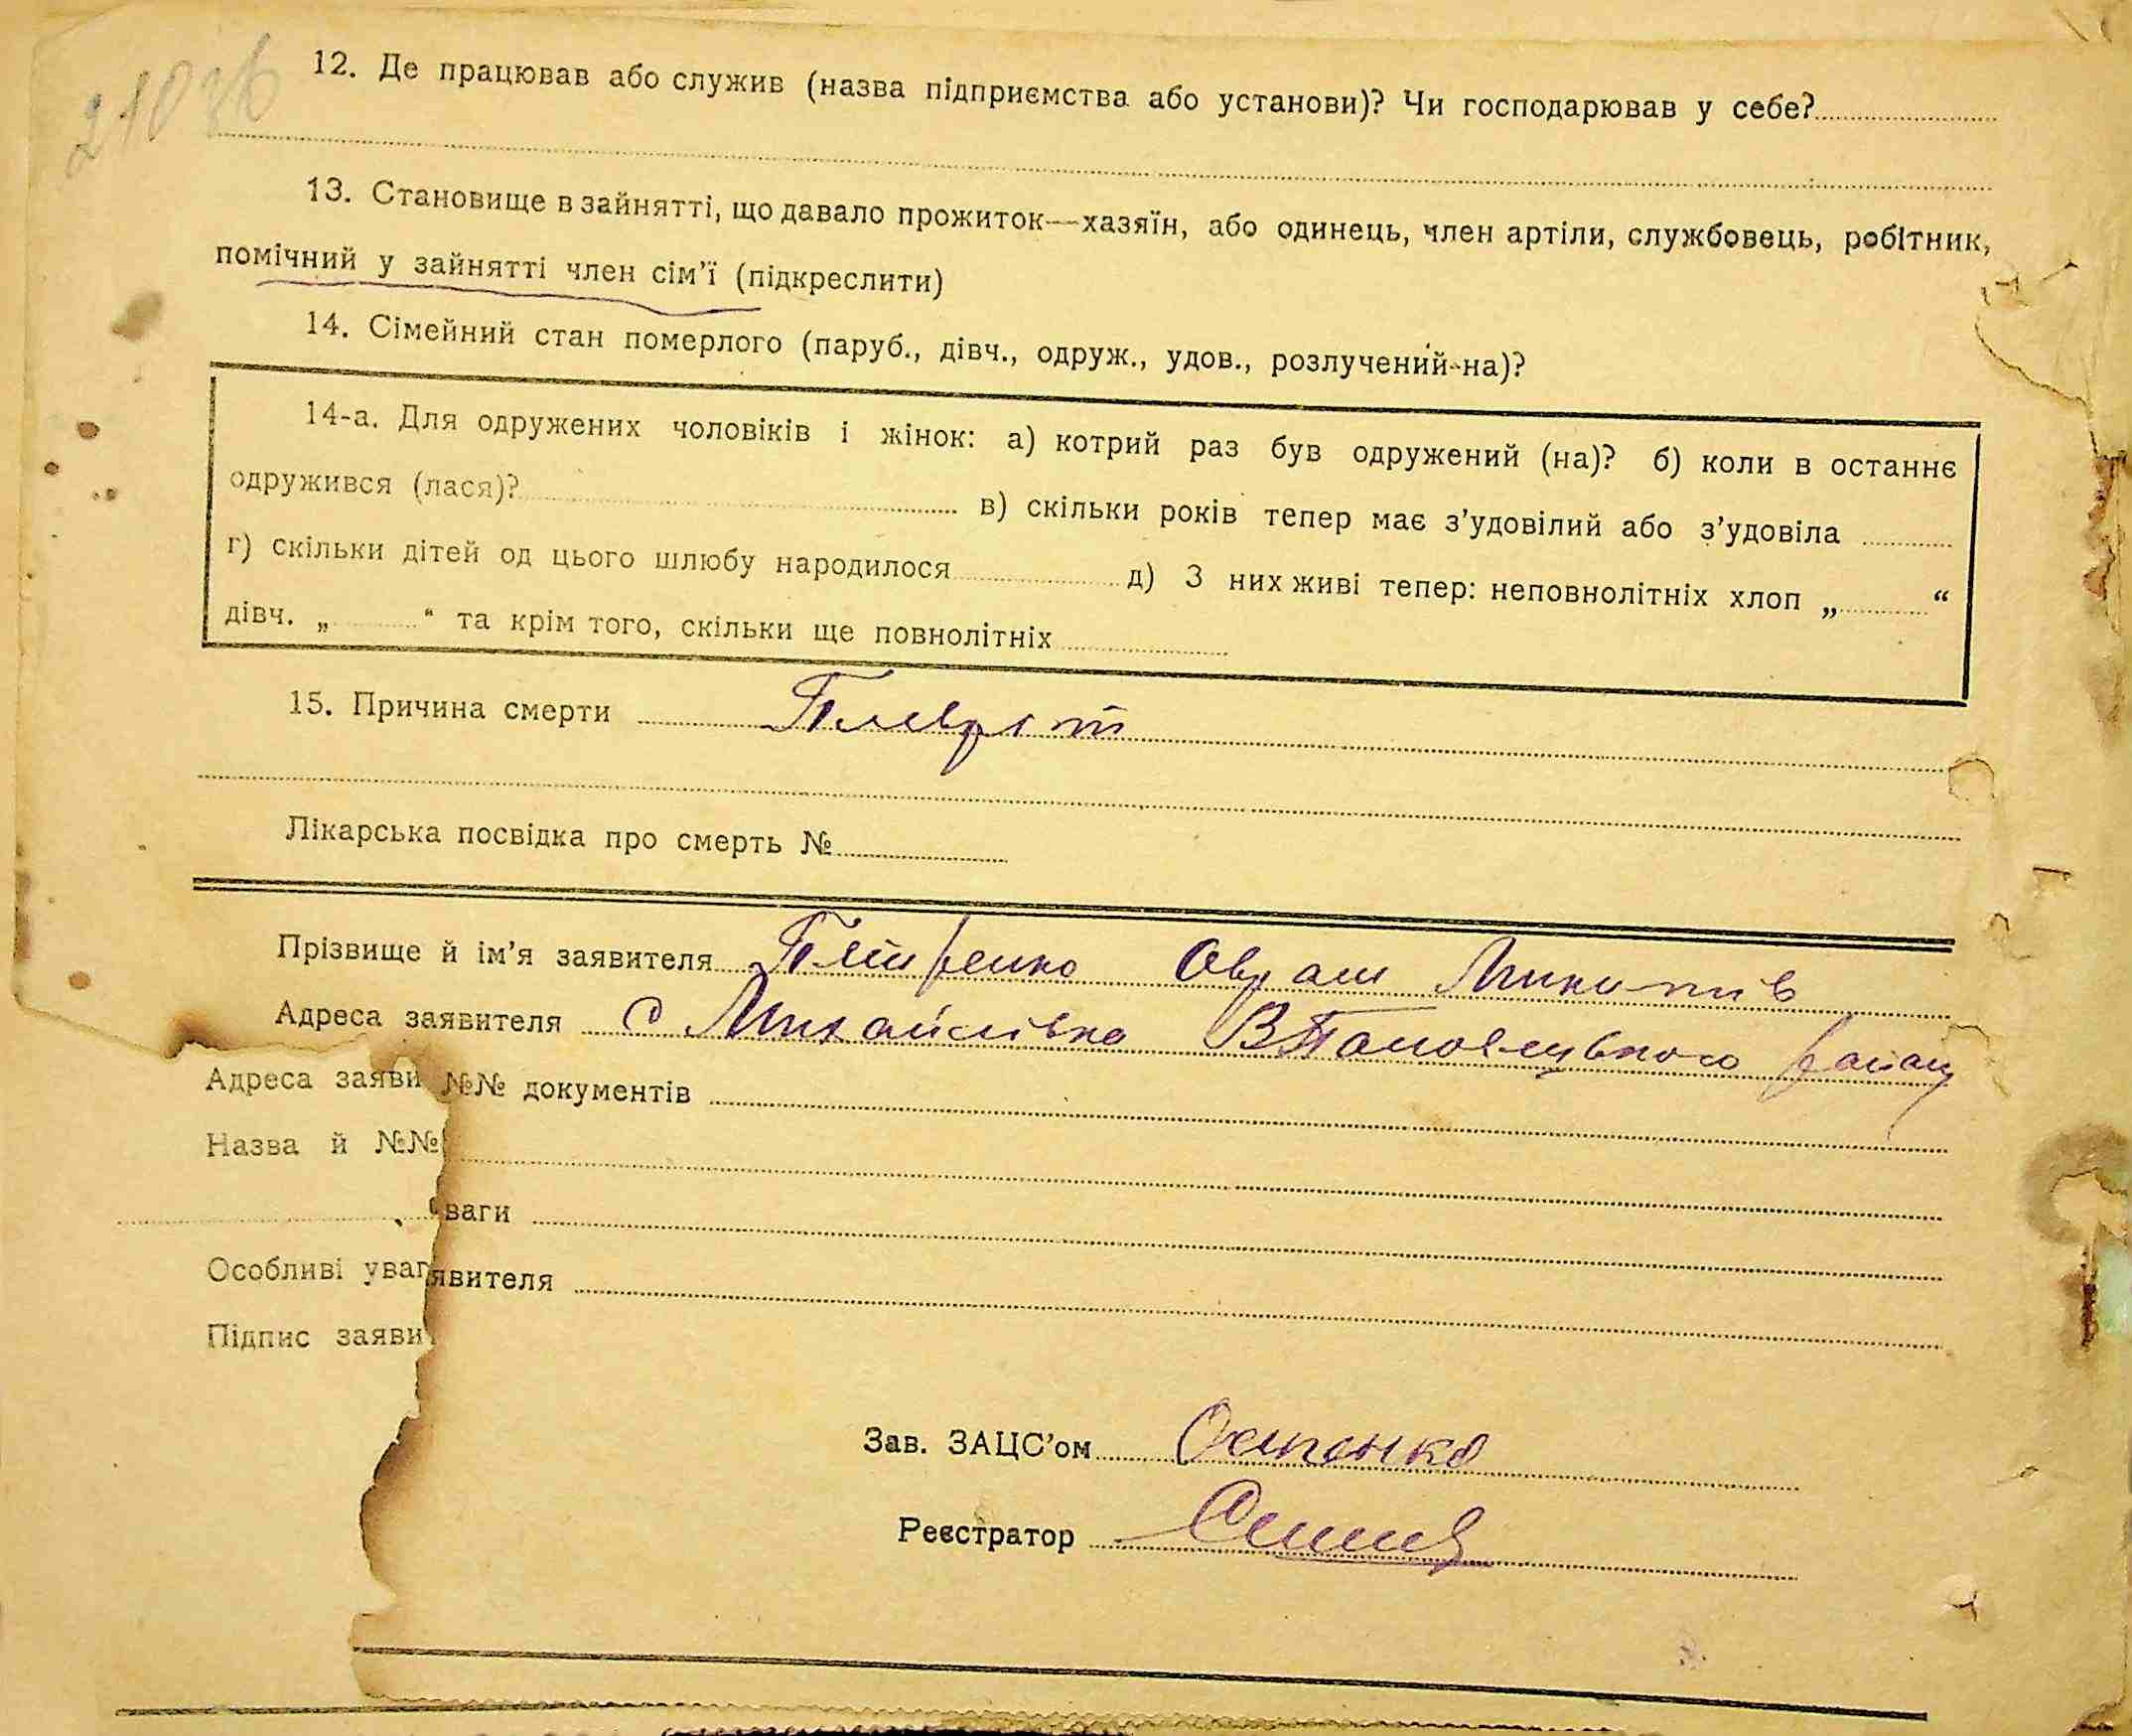 210 зв
12. Де працював або служив (назва підприємства або установи)? Чи господарював у себе?
13. Становище в зайнятті, що давало прожиток—хазяїн, або одинець, член артіли, службовець, робітник,
помічний у зайнятті член сім'ї (підкреслити)
14. Сімейний стан померлого (паруб., дівч., одруж., удов., розлучений-на)?
14-а. Для одружених чоловіків і жінок: а) котрий раз був одружений (на)? б) коли в останнє
одружився (лася)? в) скільки років тепер має з'удовілий або з'удовіла
г) скільки дітей од цього шлюбу народилося д) З них живі тепер: неповнолітніх хлоп „ “
дівч. „ “ та крім того, скільки ще повнолітніх
15. Причина смерти Плеврит
Лікарська посвідка про смерть №
Прізвище й ім'я заявителя Аврам Микитів
Адреса заявителя с Михайлівка району
Адреса заяви №№ документів
Назва й №№
ваги
Особливі уваг явителя
Підпис заяви
Зав. ЗАЦС'ом Остенко
Реєстратор